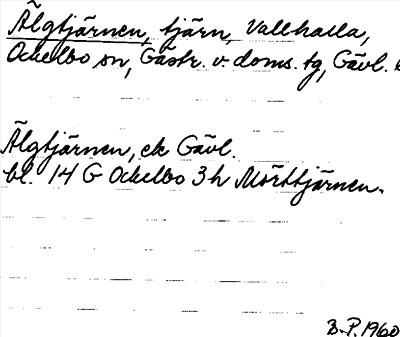 Älgtjärnen, tjärn, Vallhalla,
Ockelbo sn, Gästr. v. doms. tg, Gävl. l
Älgtjärnen, ek Gävl.
bl. 14 G Ockelbo 3h Mörttjärnen.
B.P. 1960